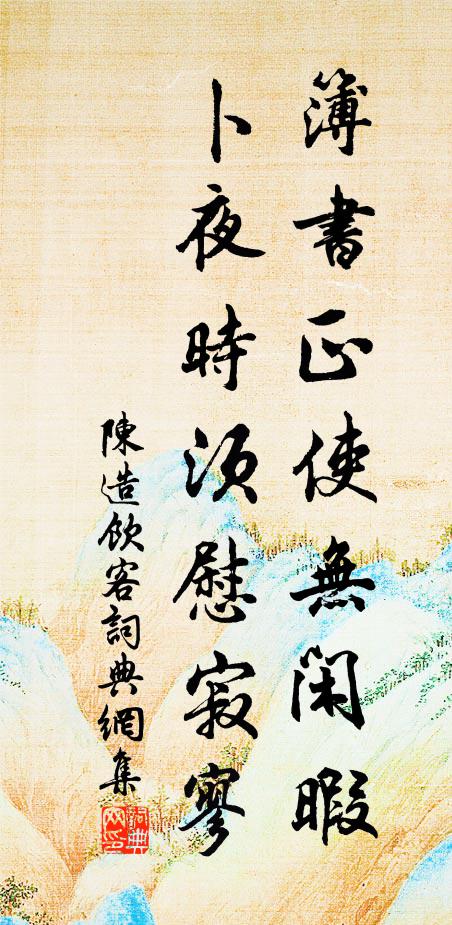 簿書正使無閑暇
卜夜時須慰寂寥
陳造飲客詞典網集
詞典網印